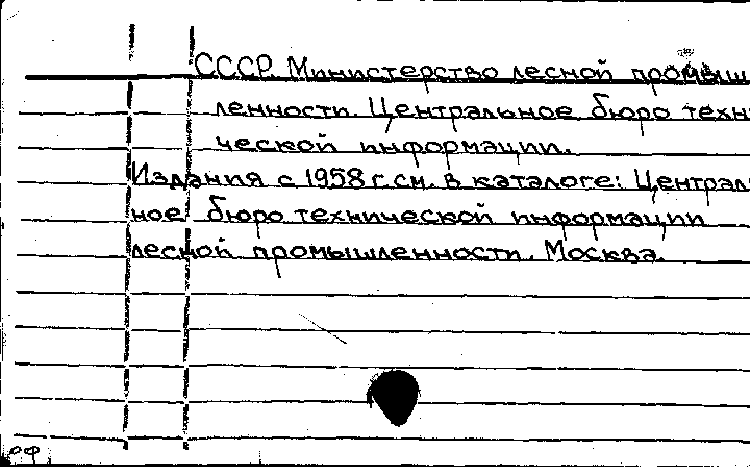 СССР. Министерство лесной промыш
ленности. Центральное бюро техни
ческой информации.
Издания с 1958 г. см. в каталоге: Централь
ное бюро технической информации
лесной промышленности. Москва.
оф